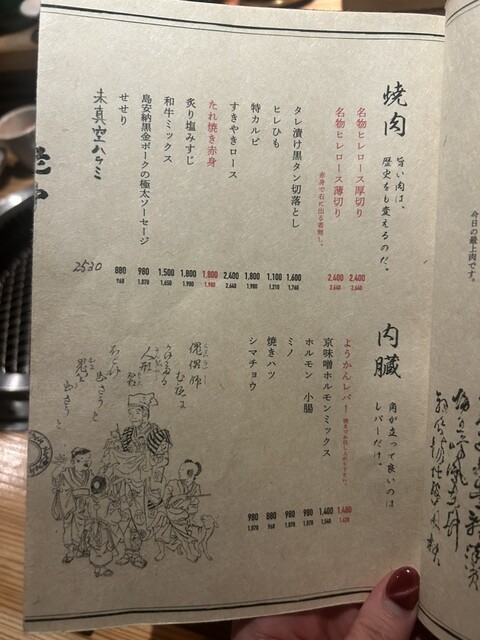 焼肉
旨い肉は、
歴史をも変えるのだ。
名物ヒレロース厚切り 2,400 2,640
名物ヒレロース薄切り 2,400 2,640
赤身で右に出る者無し。
タレ漬け黒タン切落とし 1,600 1,760
ヒレひも 1,100 1,210
特カルビ 1,800 1,980
すきやきロース 2,400 2,640
たれ焼き赤身 1,800 1,980
炙り塩みすじ 1,800 1,980
和牛ミックス 1,500 1,650
島安納黒金ポークの極太ソーセージ 980 1,078
せせり 880 968
未真空ハラミ 2530
内臓
角が立って良いのは
レバーだけ。
ようかんレバー 1,480 1,628
京味噌ホルモンミックス 1,400 1,540
ホルモン 小腸 980 1,078
ミノ 980 1,078
焼きハツ 880 968
シマチョウ 980 1,078
傀儡師
今日の最上肉です。